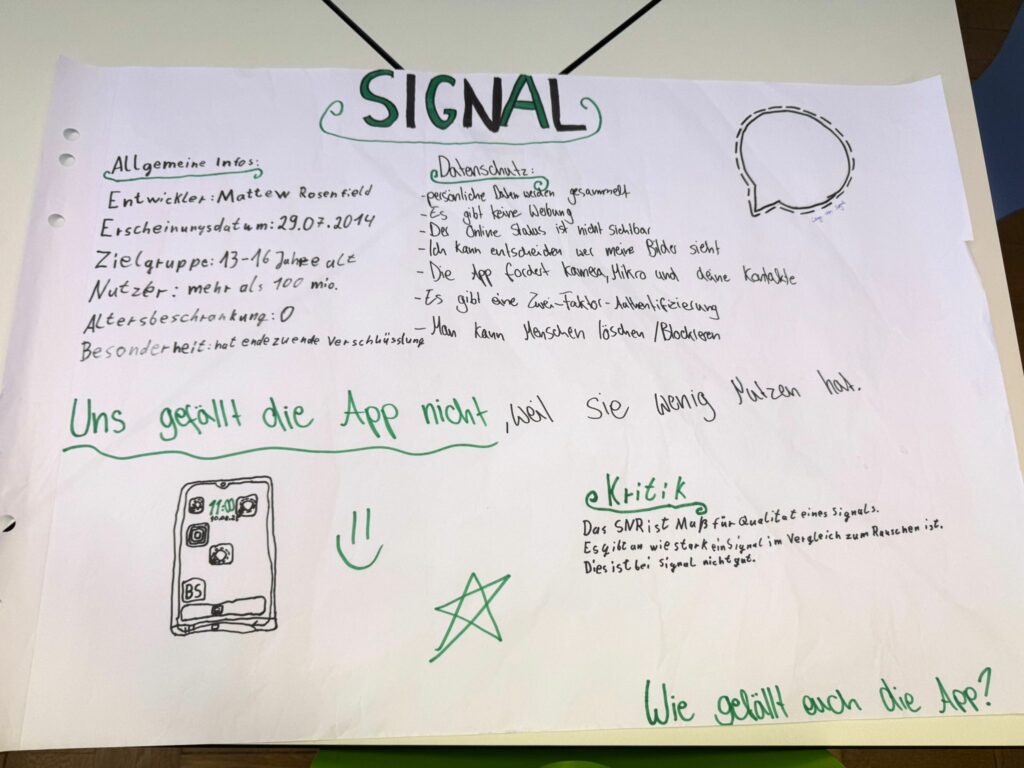 SIGNAL
Allgemeine Infos:
Entwickler: Mattew Rosenfield
Erscheinungsdatum: 29.07.2014
Zielgruppe: 13-16 Jahre alt
Nutzer: mehr als 100 mio.
Altersbeschrankung: 0
Besonderheit: hat endezuende Verschlüsslung
Datenschutz:
-persönliche Daten werden gesammelt
-Es gibt keine Werbung
-Der Online Status ist nicht sichtbar
-Ich kann entscheiden wer meine Bilder sieht
-Die App fordert kamera, Mikro und deine Kontakte
-Es gibt eine Zwei-Faktor-Authentifizierung
-Man kann Menschen löschen/Blockieren
Uns gefällt die App nicht, weil sie wenig Nutzen hat.
11:00
BS
Kritik
Das SNR ist Maß für Qualitat eines Signals.
Es gibt an wie stark ein Signal im Vergleich zum Rauschen ist.
Dies ist bei Signal nicht gut.
Wie gefällt euch die App?